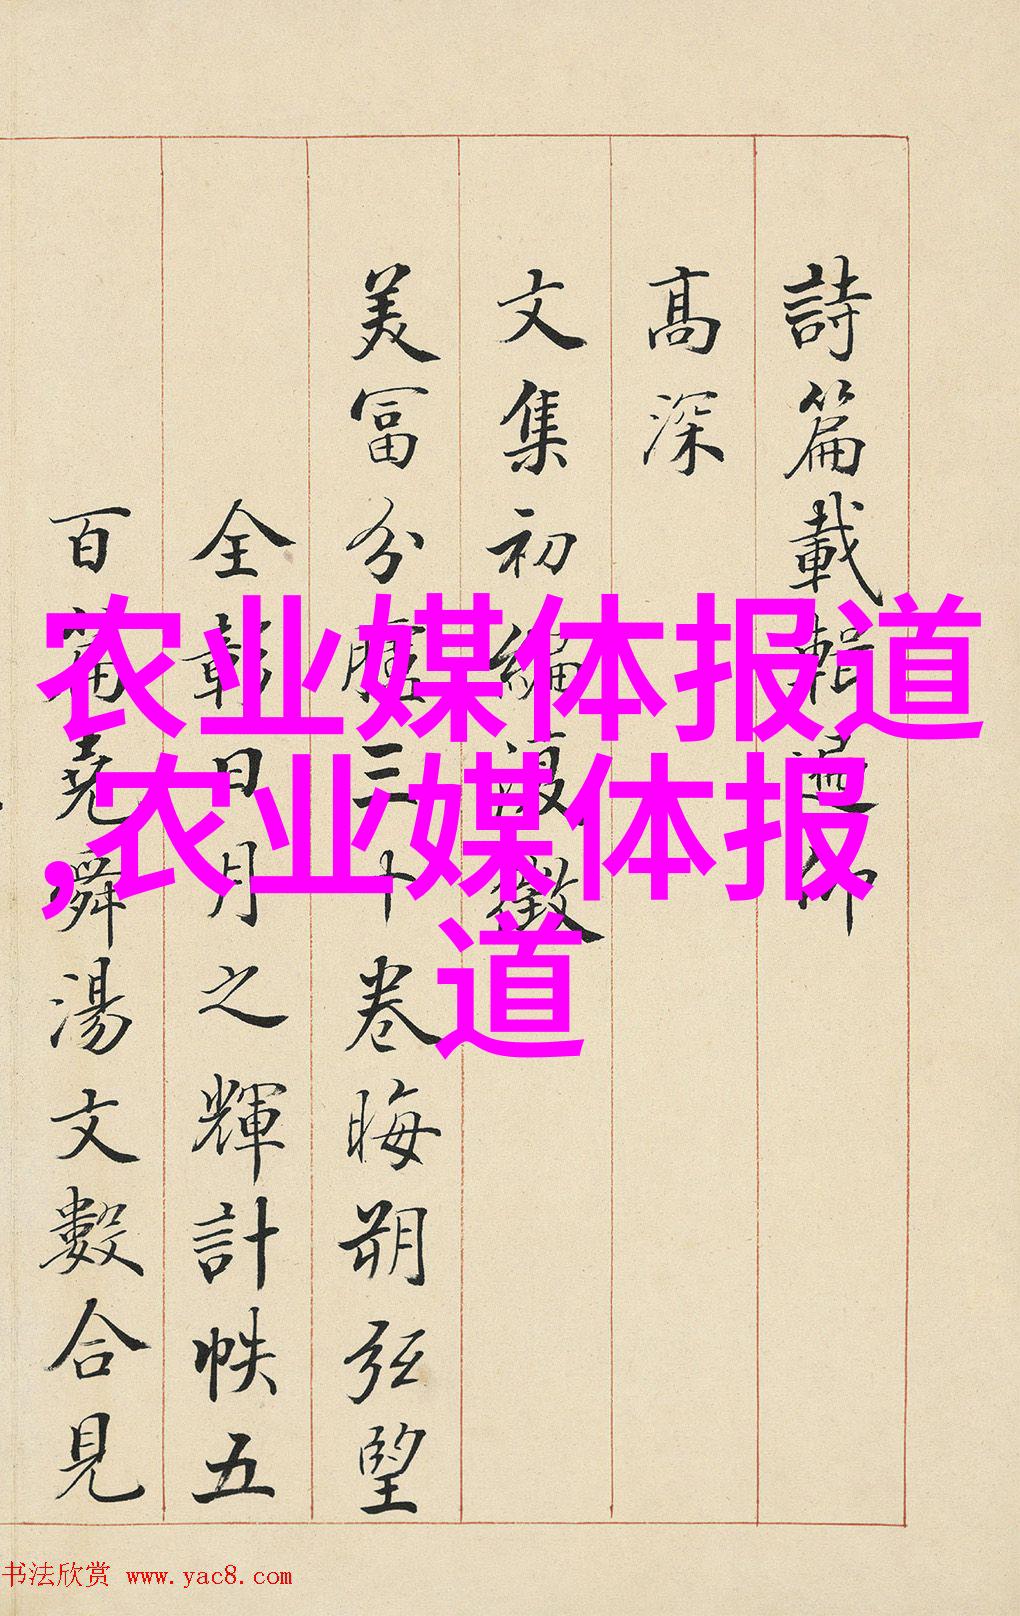 詩篇載輯遍仰
高深
文集初編復徵
美富分臚三十卷晦朔弦望
全彰日月之輝計帙五
百篇堯舜湯文數合見
农业媒体报道
,农业媒体报
道
书法欣赏 www.yac8.com